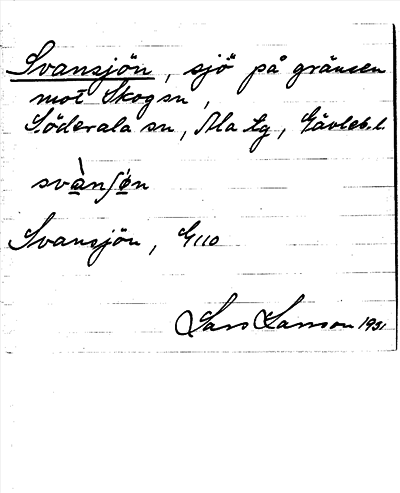 Svansjön, sjö på gränsen
mot Skog sn,
Söderala sn, Ala tg, Gävleb. l.
svànʃön
Svansjön, G110
Lars Larsson 1931